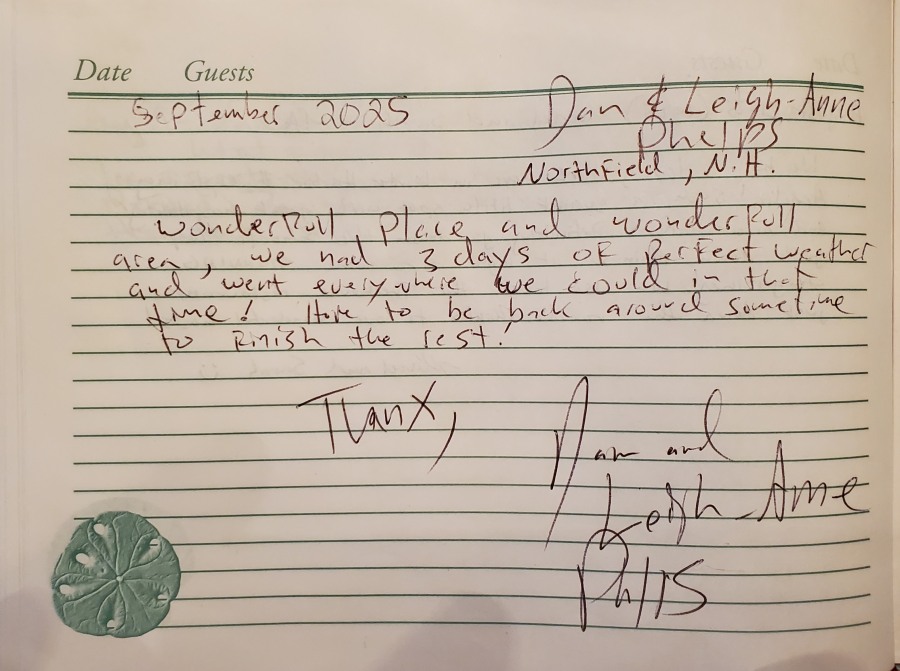 Date Guests
September 2025
Dan & Leigh-Anne
Phelps
Northfield, N.H.
wonderfull place and wonderfull
area, we had 3 days of perfect weather
and went everywhere we could in that
time! Hope to be back around sometime
to finish the rest!
Thanx,
Dan and
Leigh-Anne
Phelps